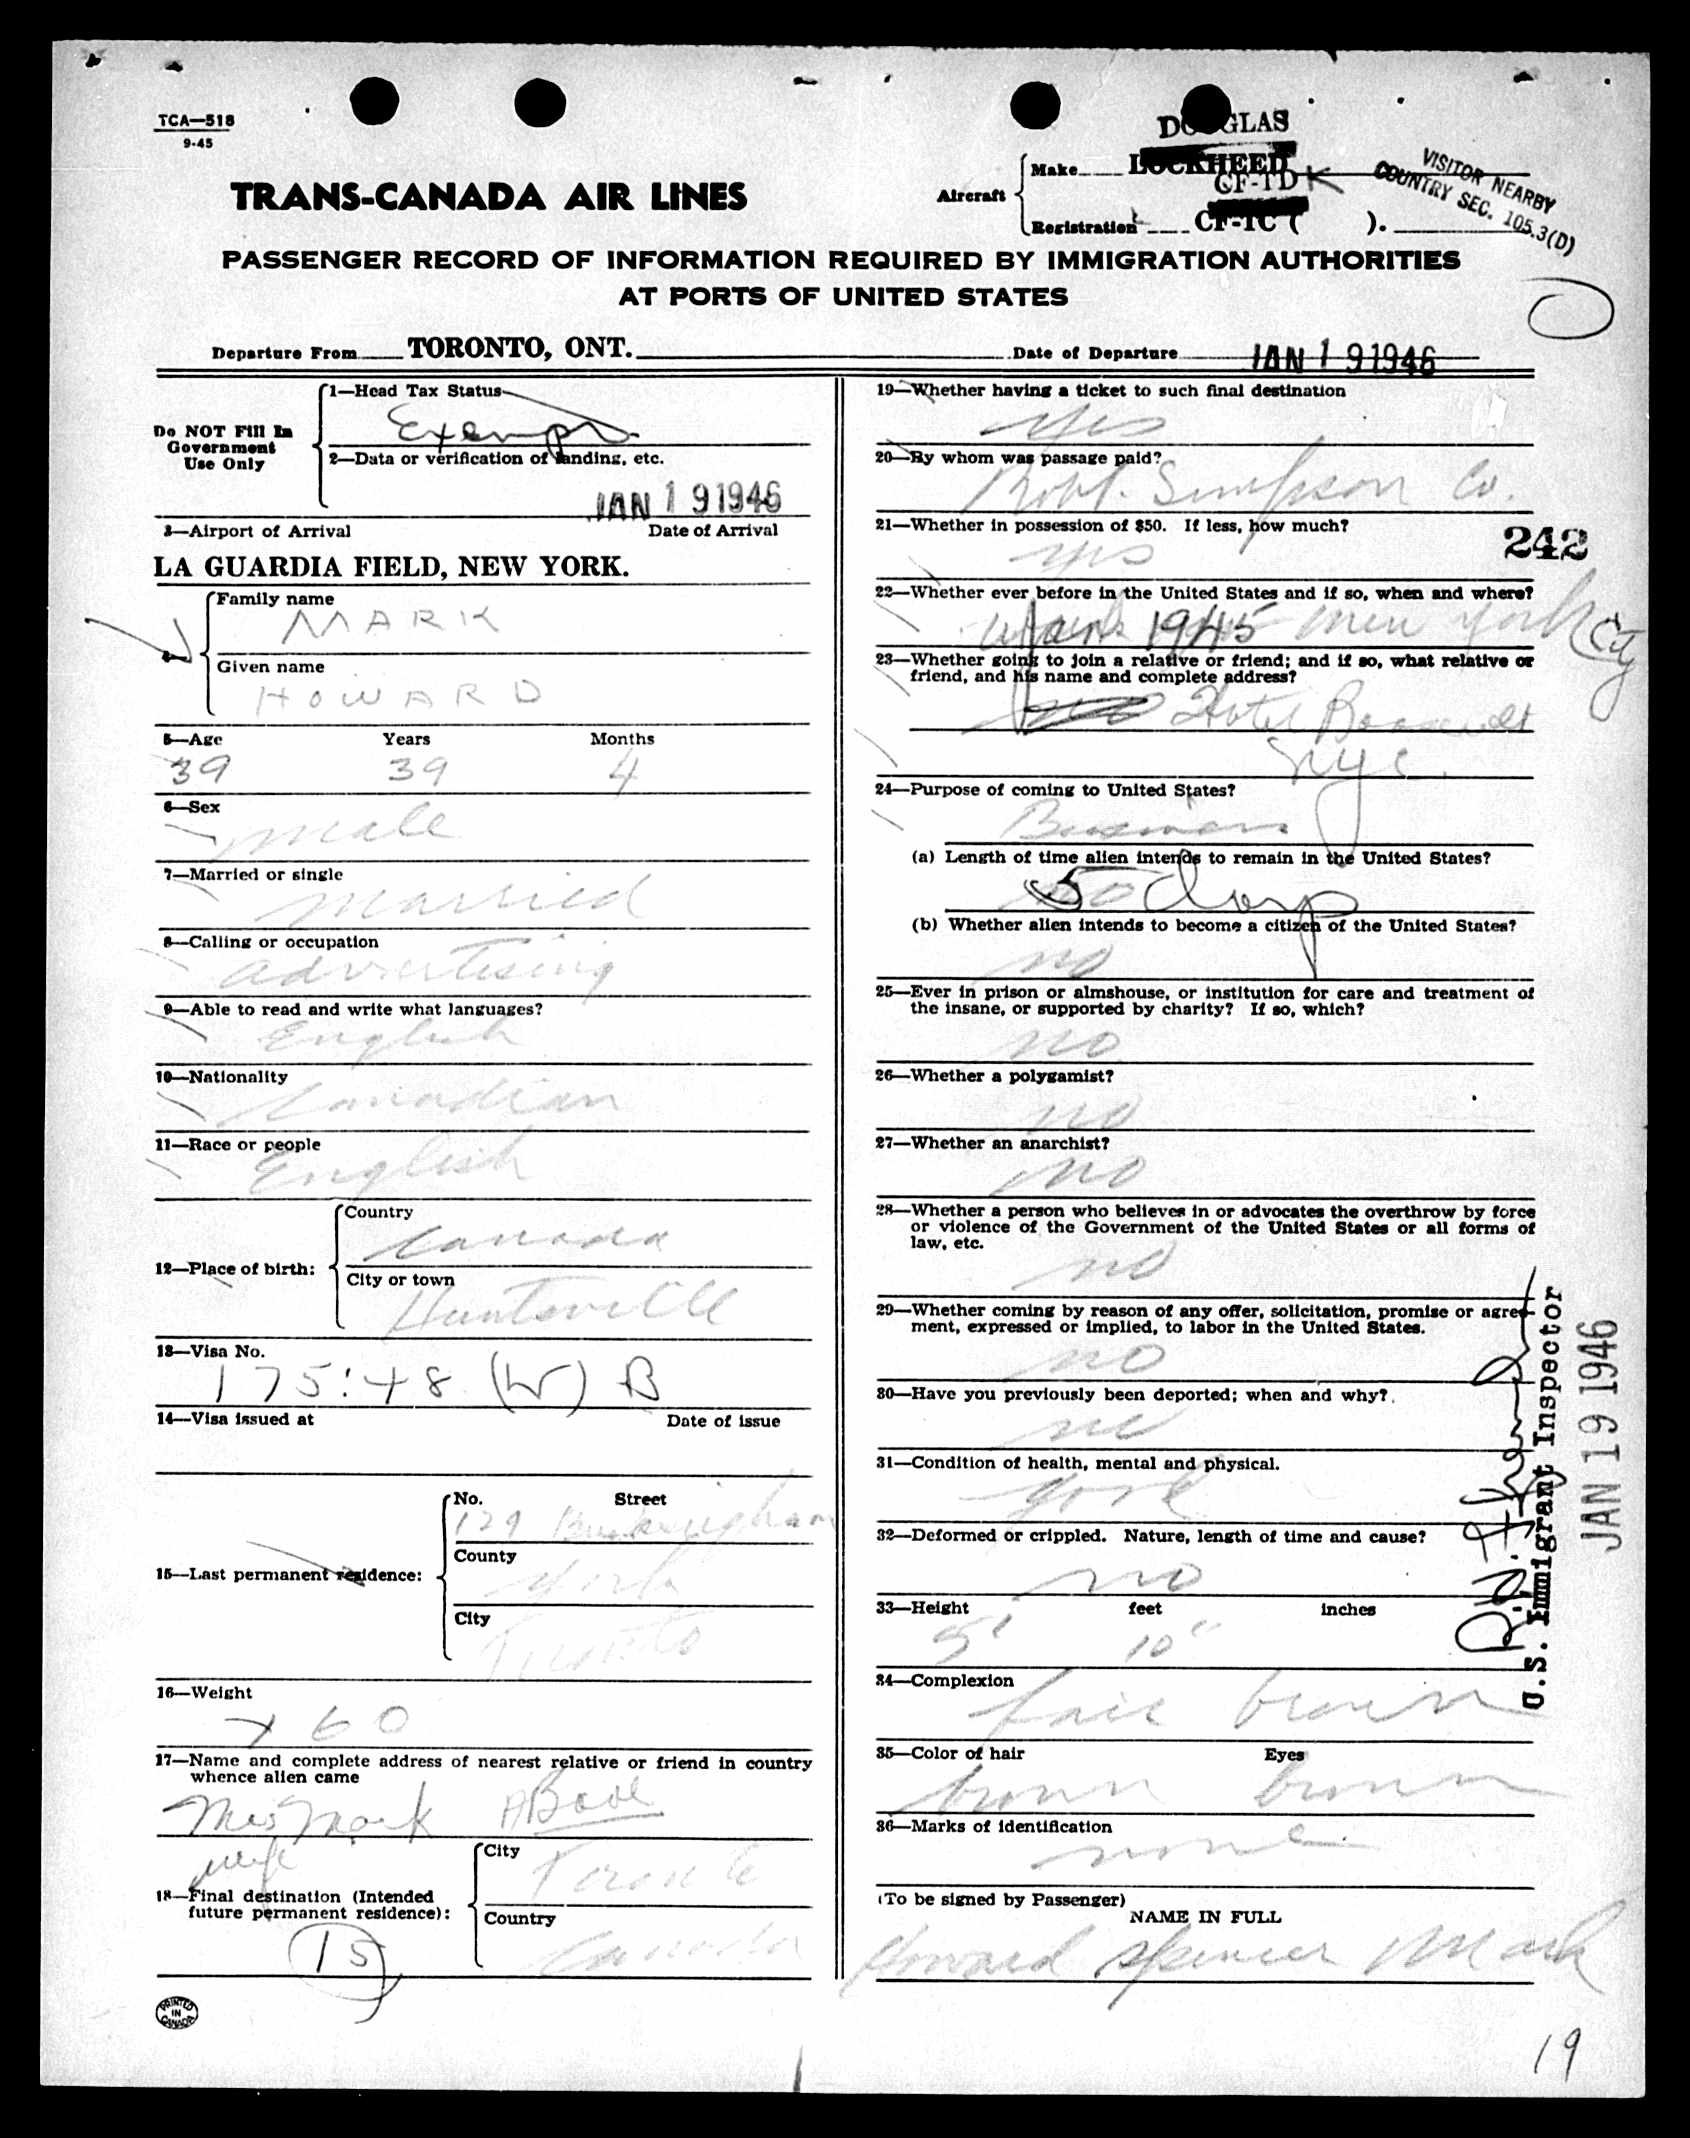 TCA—518
9-45
TRANS-CANADA AIR LINES
Aircraft
Make DOUGLAS
LOCKHEED
CF-TDK
Registration CF-TC ( ).
VISITOR NEARBY
COUNTRY SEC. 105.3(D)
PASSENGER RECORD OF INFORMATION REQUIRED BY IMMIGRATION AUTHORITIES
AT PORTS OF UNITED STATES
Departure From TORONTO, ONT. Date of Departure JAN 19 1946
Do NOT Fill In
Government
Use Only
1—Head Tax Status
Exempt
2—Data or verification of landing, etc.
JAN 19 1946
3—Airport of Arrival Date of Arrival
LA GUARDIA FIELD, NEW YORK.
Family name
MARK
Given name
HOWARD
5—Age Years Months
39 39 4
6—Sex
male
7—Married or single
married
8—Calling or occupation
advertising
9—Able to read and write what languages?
English
10—Nationality
Canadian
11—Race or people
English
12—Place of birth:
Country
Canada
City or town
Huntsville
13—Visa No.
175:48 (W) B
14—Visa issued at Date of issue
15—Last permanent residence:
No. Street
129 Buckingham
County
York
City
Toronto
16—Weight
160
17—Name and complete address of nearest relative or friend in country
whence alien came
Mrs Mark Above
wife
18—Final destination (Intended
future permanent residence):
City
Toronto
Country
Canada
15
PRINTED
IN
CANADA
19—Whether having a ticket to such final destination
yes
20—By whom was passage paid?
Robt. Simpson Co.
21—Whether in possession of $50. If less, how much?
yes
242
22—Whether ever before in the United States and if so, when and where?
1945 New York City
23—Whether going to join a relative or friend; and if so, what relative or
friend, and his name and complete address?
no Hotel Roosevelt
NYC.
24—Purpose of coming to United States?
Business
(a) Length of time alien intends to remain in the United States?
5 days
(b) Whether alien intends to become a citizen of the United States?
no
25—Ever in prison or almshouse, or institution for care and treatment of
the insane, or supported by charity? If so, which?
no
26—Whether a polygamist?
no
27—Whether an anarchist?
no
28—Whether a person who believes in or advocates the overthrow by force
or violence of the Government of the United States or all forms of
law, etc.
no
29—Whether coming by reason of any offer, solicitation, promise or agree-
ment, expressed or implied, to labor in the United States.
no
30—Have you previously been deported; when and why?
no
31—Condition of health, mental and physical.
good
32—Deformed or crippled. Nature, length of time and cause?
no
33—Height feet inches
5' 10"
34—Complexion
fair brown
35—Color of hair Eyes
brown brown
36—Marks of identification
none
U.S. Immigrant Inspector
JAN 19 1946
(To be signed by Passenger)
NAME IN FULL
Howard Spencer Mark
19